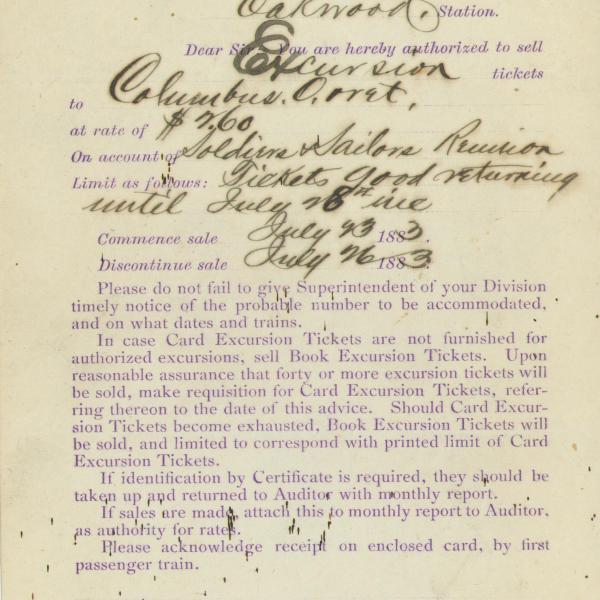 Oakwood, Station.
Dear Sir: You are hereby authorized to sell
Excursion tickets
to Columbus. O. & ret.
at rate of $ 2.60
On account of Soldiers & Sailors Reunion
Limit as follows: Tickets good returning
until July 28th inc
Commence sale July 23 1883.
Discontinue sale July 26 1883.
Please do not fail to give Superintendent of your Division
timely notice of the probable number to be accommodated,
and on what dates and trains.
In case Card Excursion Tickets are not furnished for
authorized excursions, sell Book Excursion Tickets. Upon
reasonable assurance that forty or more excursion tickets will
be sold, make requisition for Card Excursion Tickets, refer-
ring thereon to the date of this advice. Should Card Excur-
sion Tickets become exhausted, Book Excursion Tickets will
be sold, and limited to correspond with printed limit of Card
Excursion Tickets.
If identification by Certificate is required, they should be
taken up and returned to Auditor with monthly report.
If sales are made, attach this to monthly report to Auditor,
as authority for rates.
Please acknowledge receipt on enclosed card, by first
passenger train.